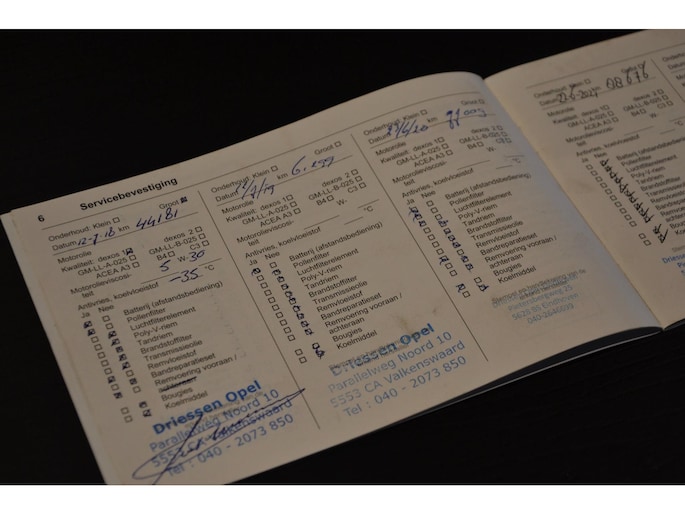 6 Servicebevestiging
Onderhoud Klein Groot
Datum 12-7-18 km 44181
Motorolie
Kwaliteit: dexos 1 dexos 2
GM-LL-A-025 GM-LL-B-025
ACEA A3 B4 C3
Motorolieviscosi- 5 w-30
teit
Antivries, koelvloeistof -35 °C
Ja Nee
Batterij (afstandsbediening)
Pollenfilter
Luchtfilterelement
Poly-V-riem
Tandriem
Brandstoffilter
Transmissieolie
Remvloeistof
Bandreparatieset
Remvoering vooraan /
achteraan
Bougies
Koelmiddel
Driessen Opel
Parallelweg Noord 10
5553 CA Valkenswaard
Tel : 040 - 2073 850
Onderhoud: Klein Groot
Datum km
Motorolie
Kwaliteit: dexos 1 dexos 2
GM-LL-A-025 GM-LL-B-025
ACEA A3 B4 C3
Motorolieviscosi- W-
teit
Antivries, koelvloeistof °C
Ja Nee
Batterij (afstandsbediening)
Pollenfilter
Luchtfilterelement
Poly-V-riem
Tandriem
Brandstoffilter
Transmissieolie
Remvloeistof
Bandreparatieset
Remvoering vooraan /
achteraan
Bougies
Koelmiddel
Driessen Opel
Parallelweg Noord 10
5553 CA Valkenswaard
Tel : 040 - 2073 850
Onderhoud: Klein Groot
Datum km
Motorolie
Kwaliteit: dexos 1 dexos 2
GM-LL-A-025 GM-LL-B-025
ACEA A3 B4 C3
Motorolieviscosi- W-
teit
Antivries, koelvloeistof °C
Ja Nee
Batterij (afstandsbediening)
Pollenfilter
Luchtfilterelement
Poly-V-riem
Tandriem
Brandstoffilter
Transmissieolie
Remvloeistof
Bandreparatieset
Remvoering vooraan /
achteraan
Bougies
Koelmiddel
Onderhoud: Klein
Datum
Motorolie
Kwaliteit: dexos 1 dexos 2
GM-LL-A-025 GM-LL-B-025
ACEA A3 B4 C3
Motorolieviscosi- W-
teit
Antivries, koelvloeistof
Ja Nee
Batterij (afstandsbediening)
Pollenfilter
Luchtfilterelement
Poly-V-riem
Tandriem
Brandstoffilter
Transmissieolie
Remvloeistof
Bandreparatieset
Remvoering vooraan /
achteraan
Bougies
Koelmiddel